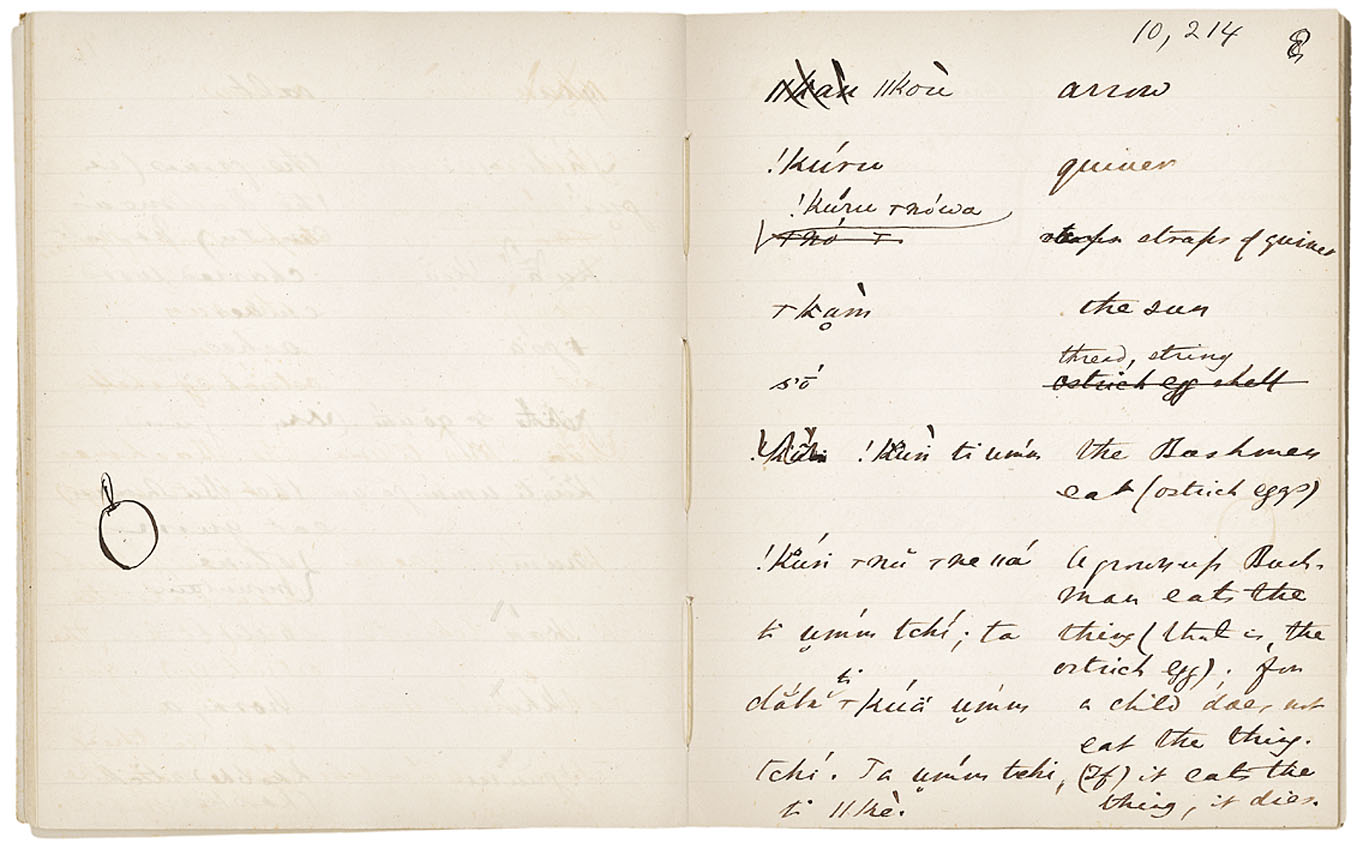 10,214
ǁkoù arrow
!kúru quiver
!kúru ꞇnówa
straps of quiver
ꞇkạ̀m the sun
thread, string
só ostrich egg shell
!kùṅ ti umḿ the Bushmen
eat (ostrich eggs)
!kúṅ ꞇnŭ ꞇne ǁá A grown up Bush-
man eats the
ti umḿ tchí; ta thing (that is, the
ostrich egg). for
ti
dăbă ꞇkúă umḿ a child does not
eat the thing.
tchí. Ta umḿ tchí, (If) it eats the
ti ǁkè. thing, it dies.